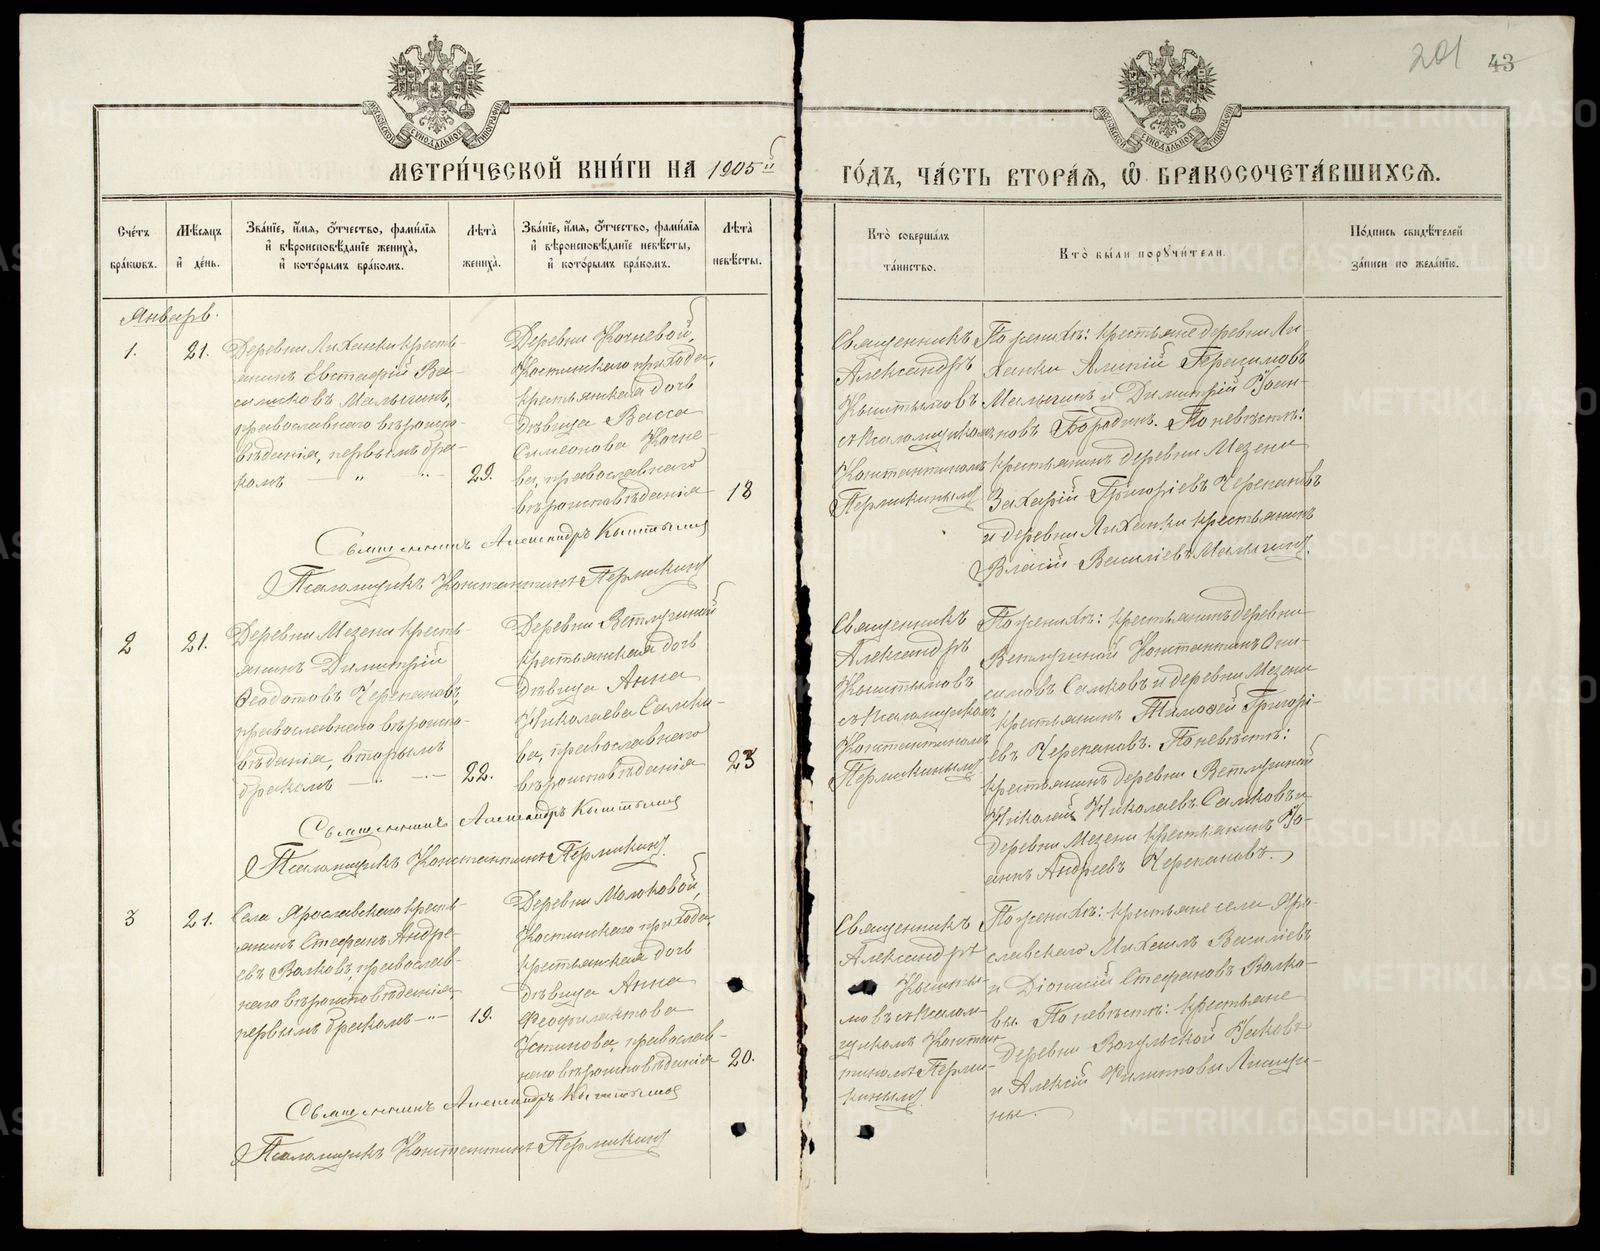 201 43
МОСКОВСКОЙ СѴНОДАЛЬНОЙ ТИПОГРАФІИ
МОСКОВСКОЙ СѴНОДАЛЬНОЙ ТИПОГРАФІИ
МЕТРИ́ЧЕСКОЙ КНИ́ГИ НА 1905й
ГО́ДЪ, ЧА́СТЬ ВТОРА́Ѧ, Ѽ БРАКОСОЧЕТА́ВШИХСѦ.
Сче́тъ
бра́кѡвъ.
Мѣ́сяцъ
и҆ де́нь.
Зва́нїе, и҆́мѧ, ѻ҆́тчество, фами́лїѧ
и҆ вѣроисповѣ́данїе жениха̀,
и҆ кото́рымъ бра́комъ.
Лѣ́та
жениха̀.
Зва́нїе, и҆́мѧ, ѻ҆́тчество, фами́лїѧ
и҆ вѣроисповѣ́данїе невѣ́сты,
и҆ кото́рымъ бра́комъ.
Лѣ́та
невѣ́сты.
Кто̀ соверша́лъ
та́инство.
Кто̀ бы́ли порꙋчи́тели.
По́дпись свидѣ́телей
за́писи по жела́нїю.
Январь.
1.
21.
Деревни Лиханки кресть-
янинъ Евстафій Ва-
силіковъ Малыгинъ,
православнаго вѣроиспо-
вѣданія, первымъ бра-
комъ — „ —
29.
Деревни Кочневой,
Костинскаго прихода,
крестьянская дочь
дѣвица Васса
Симеонова Кочне-
ва, православнаго
вѣроисповѣданія
18
Священникъ
Александръ
Кыштымовъ
съ псаломщикомъ
Константиномъ
Пермикинымъ
По женихѣ: крестьяне деревни Ли-
ханки Алипій Герасимовъ
Малыгинъ и Димитрій Іоан-
новъ Бородинъ. По невѣстѣ:
крестьянинъ деревни Мезени
Захарій Григоріевъ Черепановъ
и деревни Лиханки крестьянинъ
Власій Василіевъ Малыгинъ.
Священникъ Александръ Кыштымов
Псаломщикъ Константинъ Пермикинъ
2
21.
Деревни Мезени кресть-
янинъ Димитрій
Ѳеодотовъ Черепановъ,
православнаго вѣроиспо-
вѣданія, вторымъ
бракомъ — „ —
22.
Деревни Ветлугиной
крестьянская дочь
дѣвица Анна
Николаева Самко-
ва, православнаго
вѣроисповѣданія
23
Священникъ
Александръ
Кыштымовъ
съ псаломщикомъ
Константиномъ
Пермикинымъ
По женихѣ: крестьянинъ деревни
Ветлугиной Константинъ Они-
симовъ Самковъ и деревни Мезени
крестьянинъ Тимоѳей Григорі-
евъ Черепановъ. По невѣстѣ:
крестьянинъ деревни Ветлугиной
Николай Николаевъ Самковъ и
деревни Мезени крестьянинъ Іо-
аннъ Андреевъ Черепановъ.
Священникъ Александръ Кыштымов
Псаломщикъ Константинъ Пермикинъ.
3
21.
Села Ярославскаго кресть-
янинъ Стефанъ Андре-
евъ Волковъ, православ-
наго вѣроисповѣданія,
первымъ бракомъ — „ —
19.
Деревни Молоковой,
Костинскаго прихода,
крестьянская дочь
дѣвица Анна
Феофилактова
Устинова, православ-
наго вѣроисповѣданія
20.
Священникъ
Александръ
Кышты-
мовъ съ псалом-
щикомъ Констан-
тиномъ Перми-
кинымъ
По женихѣ: крестьяне села Яро-
славскаго Михаилъ Василіевъ
и Діонисій Стефановъ Волко-
вы. По невѣстѣ: крестьяне
деревни Вогульской Іаковъ
и Алексій Филипповы
ны.
Священникъ Александръ Кыштымов
Псаломщикъ Константинъ Пермикинъ
METRIKI.GASO-URAL.RU